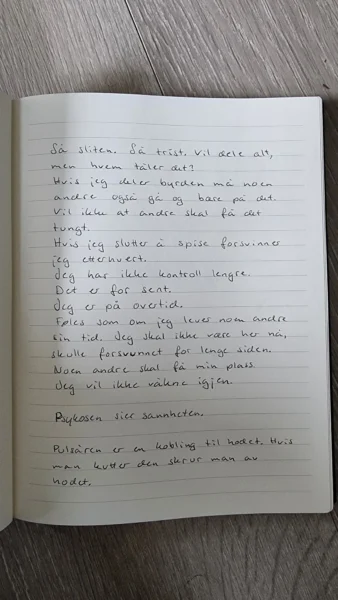 Så sliten. Så trist. Vil dele alt,
men hvem tåler det?
Hvis jeg deler byrden må noen
andre også gå og bære på det.
Vil ikke at andre skal få det
tungt.
Hvis jeg slutter å spise forsvinner
jeg etterhvert.
Jeg har ikke kontroll lengre.
Det er for sent.
Jeg er på overtid.
Føles som om jeg lever noen andre
sin tid. Jeg skal ikke være her nå,
skulle forsvunnet for lenge siden.
Noen andre skal få min plass.
Jeg vil ikke våkne igjen.
Psykosen sier sannheten.
Pulsåren er en kobling til hodet. Hvis
man kutter den skrur man av
hodet.